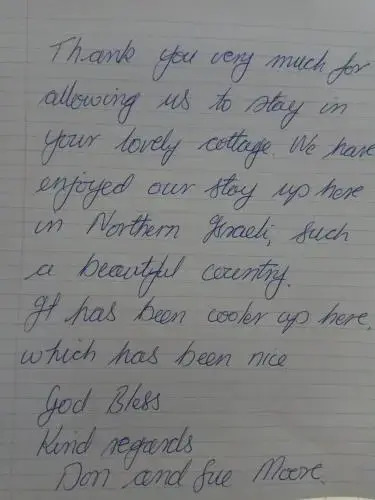 Thank you very much for
allowing us to stay in
your lovely cottage. We have
enjoyed our stay up here
in Northern Israeli, such
a beautiful country.
It has been cooler up here,
which has been nice
God Bless
Kind regards
Don and Sue Moore.